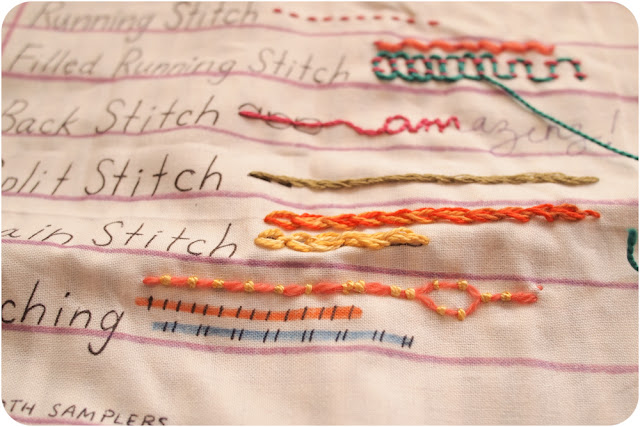 Running Stitch
Filled Running Stitch
Back Stitch amazing!
plit Stitch
ain Stitch
ching
OTH SAMPLERS